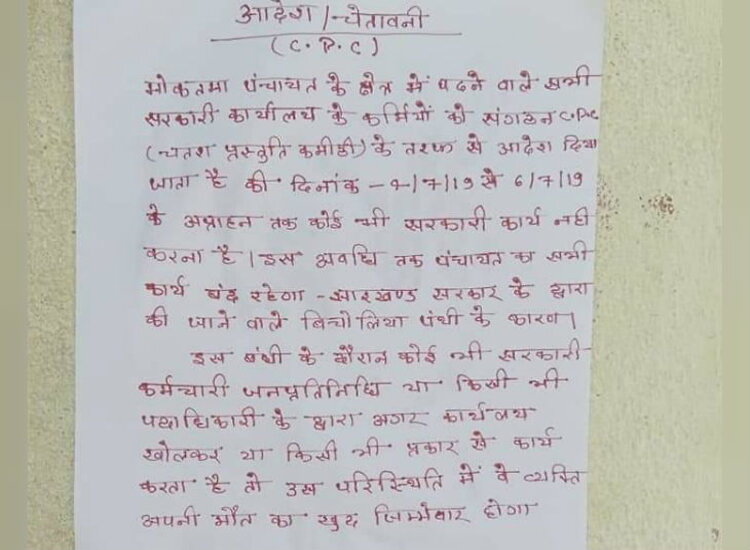 आदेश/चेतावनी
(C.P.C)
मोकतमा पंचायत के क्षेत्र में पढने वाले सभी
सरकारी कार्यालय के कर्मियों को संगठन C.P.C
(चतरा प्रस्तुति कमीटी) के तरफ से आदेश दिया
जाता है की दिनांक - 2/7/19 से 6/7/19
के अप्राहन तक कोई भी सरकारी कार्य नहीं
करना है। इस अवधि तक पंचायत का सभी
कार्य बंद रहेगा - झारखण्ड सरकार के द्वारा
की जाने वाले बिचोलिया पंथी के कारण।
इस बंधी के दौरान कोई भी सरकारी
कर्मचारी जनप्रतिनिधि या किसी भी
पदाधिकारी के द्वारा अगर कार्यलय
खोलकर या किसी भी प्रकार से कार्य
करता है तो उस परिस्थिति में वे व्यक्ति
अपनी मौत का खुद जिम्मेवार होगा